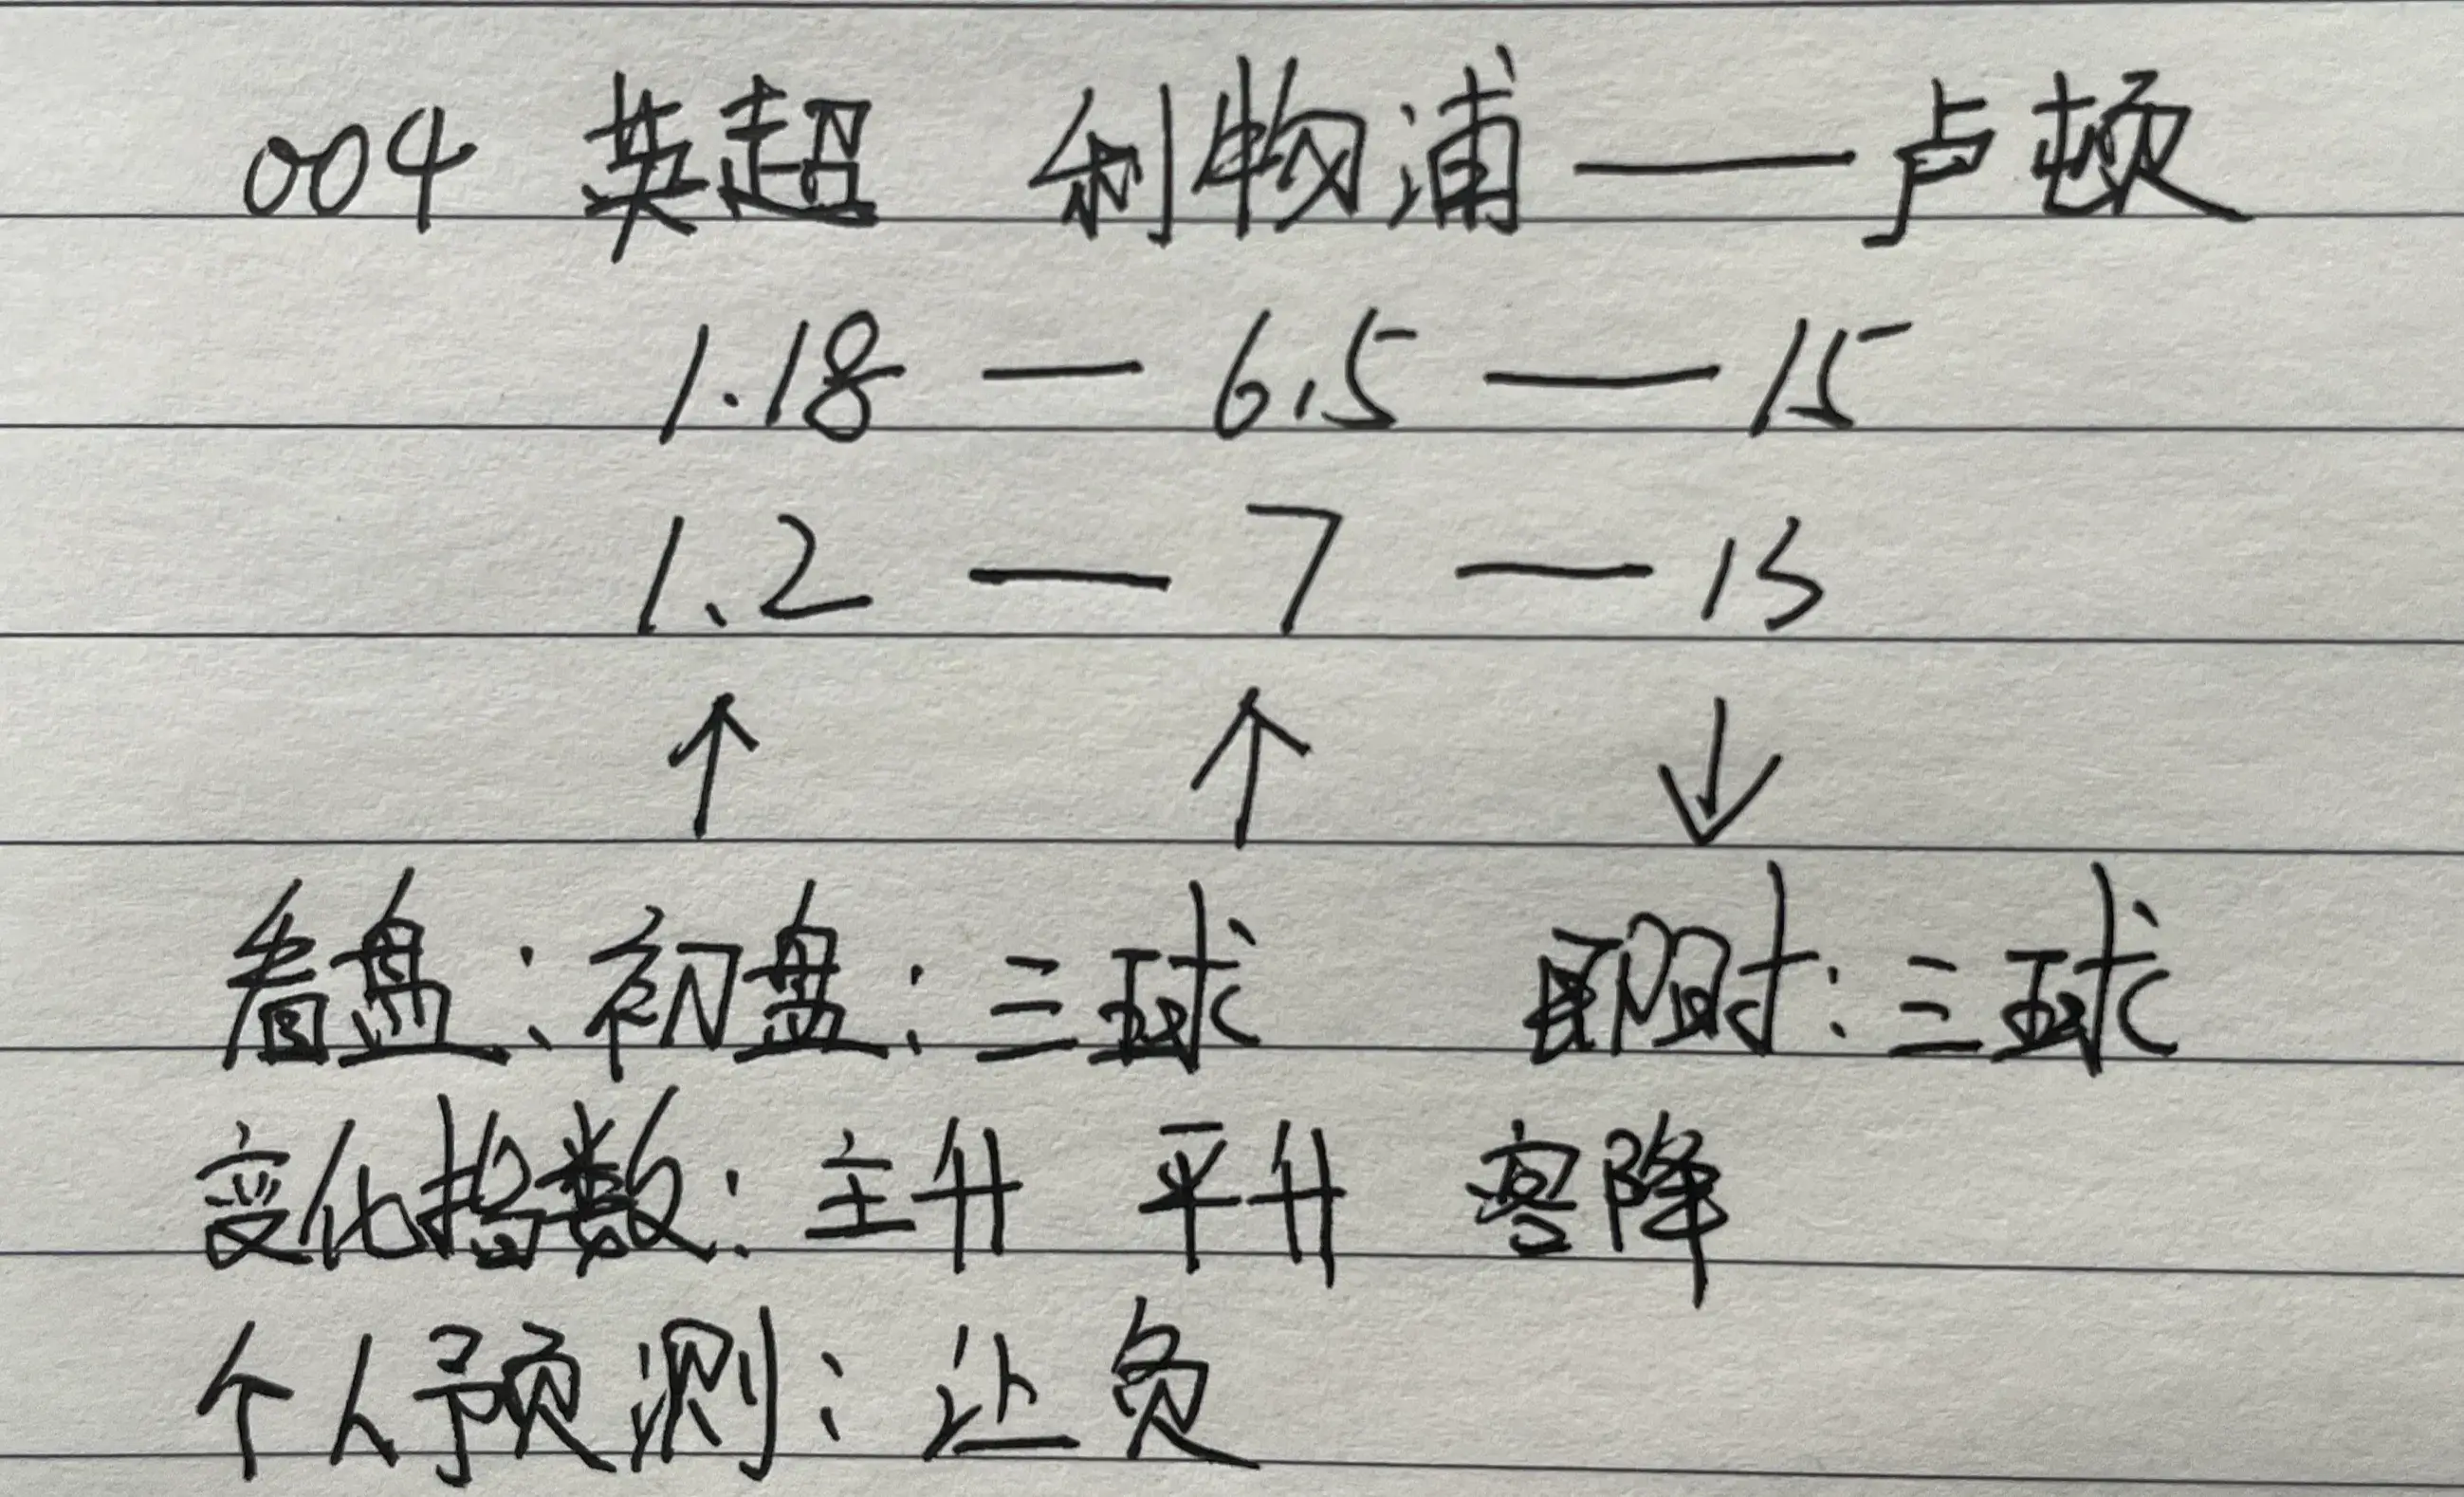 004 英超 利物浦——卢顿
1.18 — 6.5 — 15
1.2 — 7 — 13
↑ ↑ ↓
看盘:初盘:三球 即时:三球
变化指数:主升 平升 客降
个人预测:让负